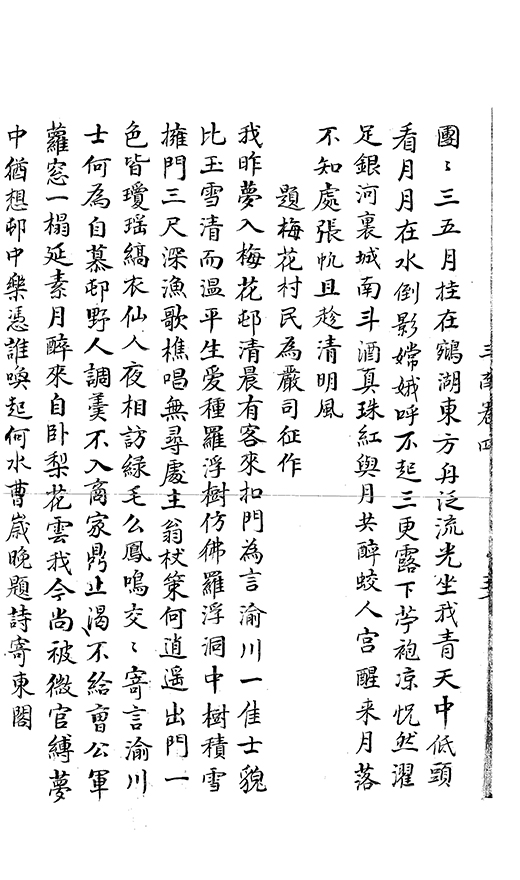 團〻三五月挂在鵷湖東方舟泛流光坐我青天中低頭
看月月在水倒影嫦娥呼不起三更露下苧袍凉恍然濯
足銀河裏城南斗酒真珠紅與月共醉蛟人宮醒来月落
不知處張帆且趁清明風
題梅花村民為嚴司征作
我昨夢入梅花邨清晨有客來扣門為言渝川一佳士貌
比玉雪清而温平生愛種羅浮樹仿佛羅浮洞中樹積雪
擁門三尺深漁歌樵唱無尋處主翁杖策何逍遥出門一
色皆瓊瑶縞衣仙人夜相訪緑毛么鳳鳴交〻寄言渝川
士何為自慕邨野人調羮不入商家鼎止渴不給曹公軍
蘿窓一榻延素月醉來自卧梨花雲我今尚被微官縛夢
中猶想邨中樂憑誰喚起何水曹歲晚題詩寄東閣
卷四